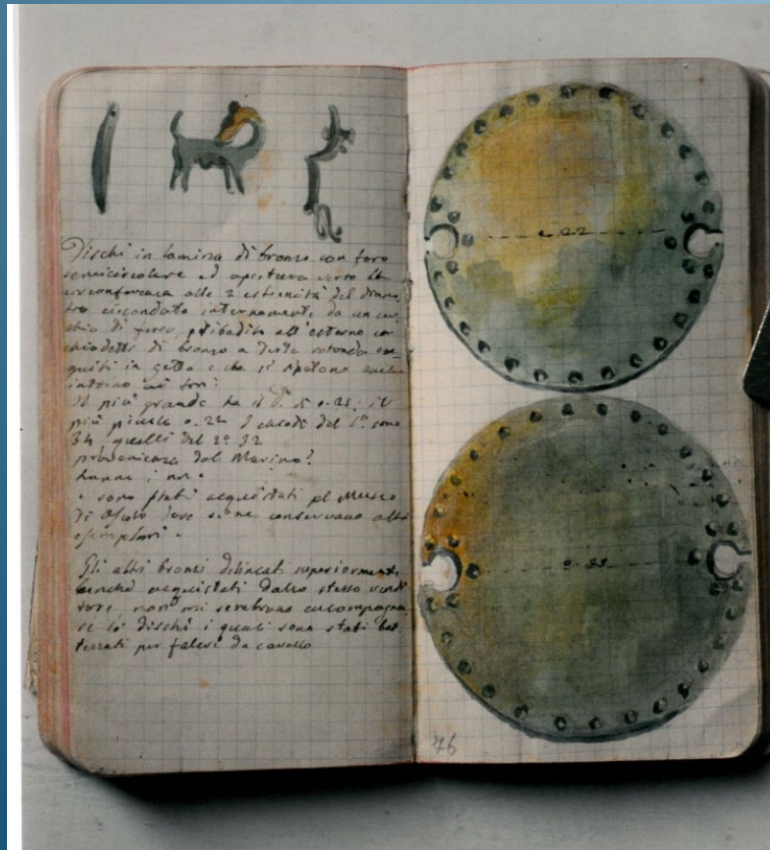 Dischi in lamina di bronzo con foro
semicircolare ed apertura verso la
circonferenza alle 2 estremità del diame
tro circondato internamente da un cer
chio di ferro, ribadito all'esterno con
chiodetti di bronzo a testa rotonda ese
guiti in getto e che si ripetono anche
intorno ai fori:
Il più grande ha il D. di 0.25; il
più piccolo 0.22 I chiodi del 1º sono
34 quelli del 2º 32
provenienza dal Marino?
hanno i nº
e sono stati acquistati pel Museo
di dove se ne conservano altri
esemplari.
Gli altri bronzi delineati superiormente
benché acquistati dallo stesso vendi
tore, non mi sembrano accompagnar
si ai dischi i quali sono stati bat
tezzati per faleri da cavallo
0.22
76